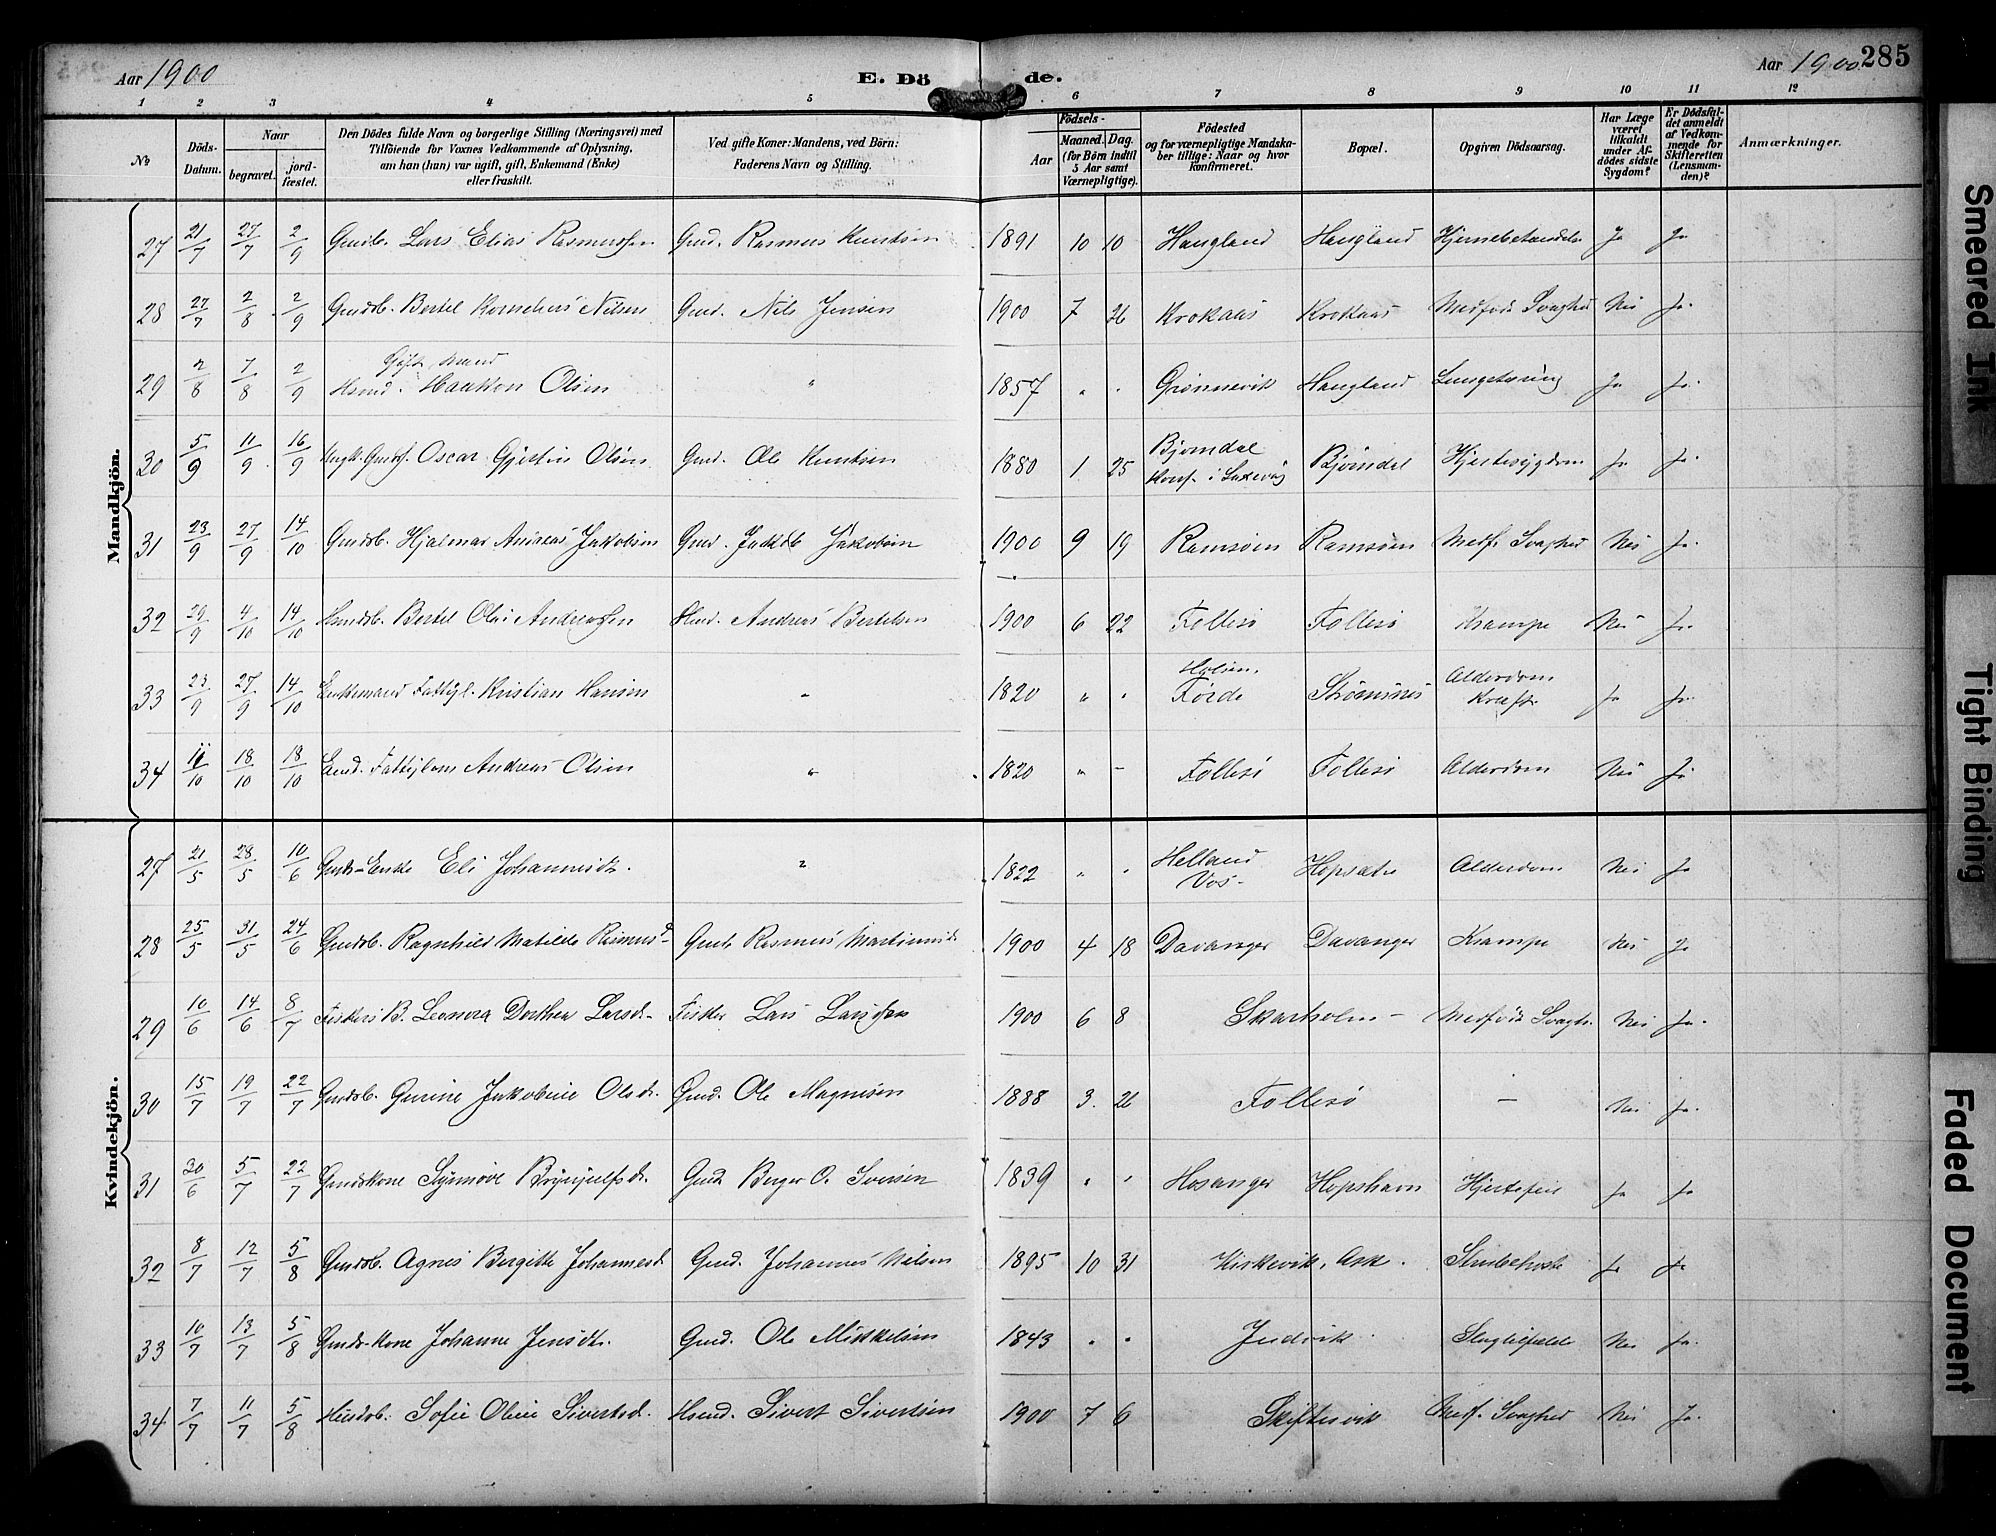 Aar 1900 E. Dö de. Aar 1900 285
1 2 3 4 5 6 7 8 9 10 11 12
No
Döds-Datum.
Naar
begravet.
jord-fæstet.
Den Dödes fulde Navn og borgerlige Stilling (Næringsvei) med
Tilföiende for Voxnes Vedkommende af Oplysning,
om han (hun) var ugift, gift, Enkemand (Enke)
eller fraskilt.
Ved gifte Koner: Mandens, ved Börn:
Faderens Navn og Stilling.
Födsels-
Aar
Maaned. Dag.
(for Börn indtil
5 Aar samt
Værnepligtige).
Födested
og for værnepligtige Mandska-
ber tillige: Naar og hvor
konfirmeret.
Bopæl.
Opgiven Dödsaarsag.
Har Læge
været
tilkaldt
under Af-
dödes sidste
Sygdom?
Er Dödsfal-
det anmeldt
af Vedkom-
mende for
Skifteretten
(Lensman-
den)?
Anmærkninger.
Mandkjön.
27 21/7 27/7 2/9 Lars Elias Rasmussen Gmd. Rasmus Knutsen 1891 10 10 Haugland Haugland Ja Ja
28 27/7 2/8 2/9 Gmdsb. Bertel Kornelius Nilsen Gmd. Nils Jensen 1900 7 26 Krokaas Krokaas Medfødt Svaghed Nei Ja.
Gift mand
29 2/8 7/8 2/9 Hsmd. Haakon Olsen " 1857 " " Grønnevik Haugland Lungetæring Ja Ja.
30 5/9 11/9 16/9 Oscar Gjertin Olsen Gmd. Ole Knutsen 1880 1 25 Bjørndal Konf. i Laxevåg Bjørndal Hjertesygdom Ja Ja.
31 23/9 27/9 14/10 Gmdsb. Hjalmar Andreas Jakobsen Gmd. Jakob Jakobsen 1900 9 19 Ramsøen Ramsøen Medf. Svaghed Nei Ja.
32 29/9 4/10 14/10 Bertel Olai Andreassen Andreas Bertelsen 1900 6 22 Follesø Follesø Krampe Nei Ja.
33 23/9 27/9 14/10 Enkemand Fattigl. Kristian Hansen " 1820 " " Holsen. Førde Strømsnes Alderdom Kræft. Ja Ja.
34 11/10 18/10 18/10 Andreas Olsen " 1820 " - Follesø Follesø Alderdom Nei Ja
Kvindekjön.
27 21/5 28/5 10/6 Gmds-Enke Eli Johannesdt. " 1822 " " Helland Vos- Hopsætre Alderdom Nei Ja
28 25/5 31/5 24/6 Gmdsb. Ragnhild Matilde Rasmusd- Gmd. Rasmus 1900 4 18 Davanger Davanger Krampe Nei Ja
29 10/6 14/6 8/7 Fiskers B. Leonora Dorthea Larsd- Fisker Lars Larssen 1900 6 8 Skarholm - Medfødt Svagh. Nei Ja.
30 15/7 19/7 22/7 Gmdsb. Gurine Jakobine Olsd. Gmd. Ole Magnesen 1888 3. 26 Follesø - Nei Ja.
31 30/6 5/7 22/7 Gmdskone Synnøve Brynjulfsd. Gmd Berger O. Iversen 1839 " " Hosanger Hopshavn Hjertefeil Ja Ja
32 8/7 12/7 5/8 Gmdsb. Agnes Bergitte Johannesd Gmd. Johannes Nilsen 1895 10 31 Kirkevik, Ask. Strubehoste Ja Ja
33 10/7 13/7 5/8 Gmds-kone Johanne Jensdt. Gmd. Ole Mikkelsen 1843 " " Indvik Slagtilfælde Nei Ja.
34 7/7 11/7 5/8 Sofie Oline Sivertsd. Hsmd. Sivert Sivertsen 1900 7 6 Skiftesvik Medf. Svaghed Nei Ja.
Smeared Ink
Tight Binding
Faded Document